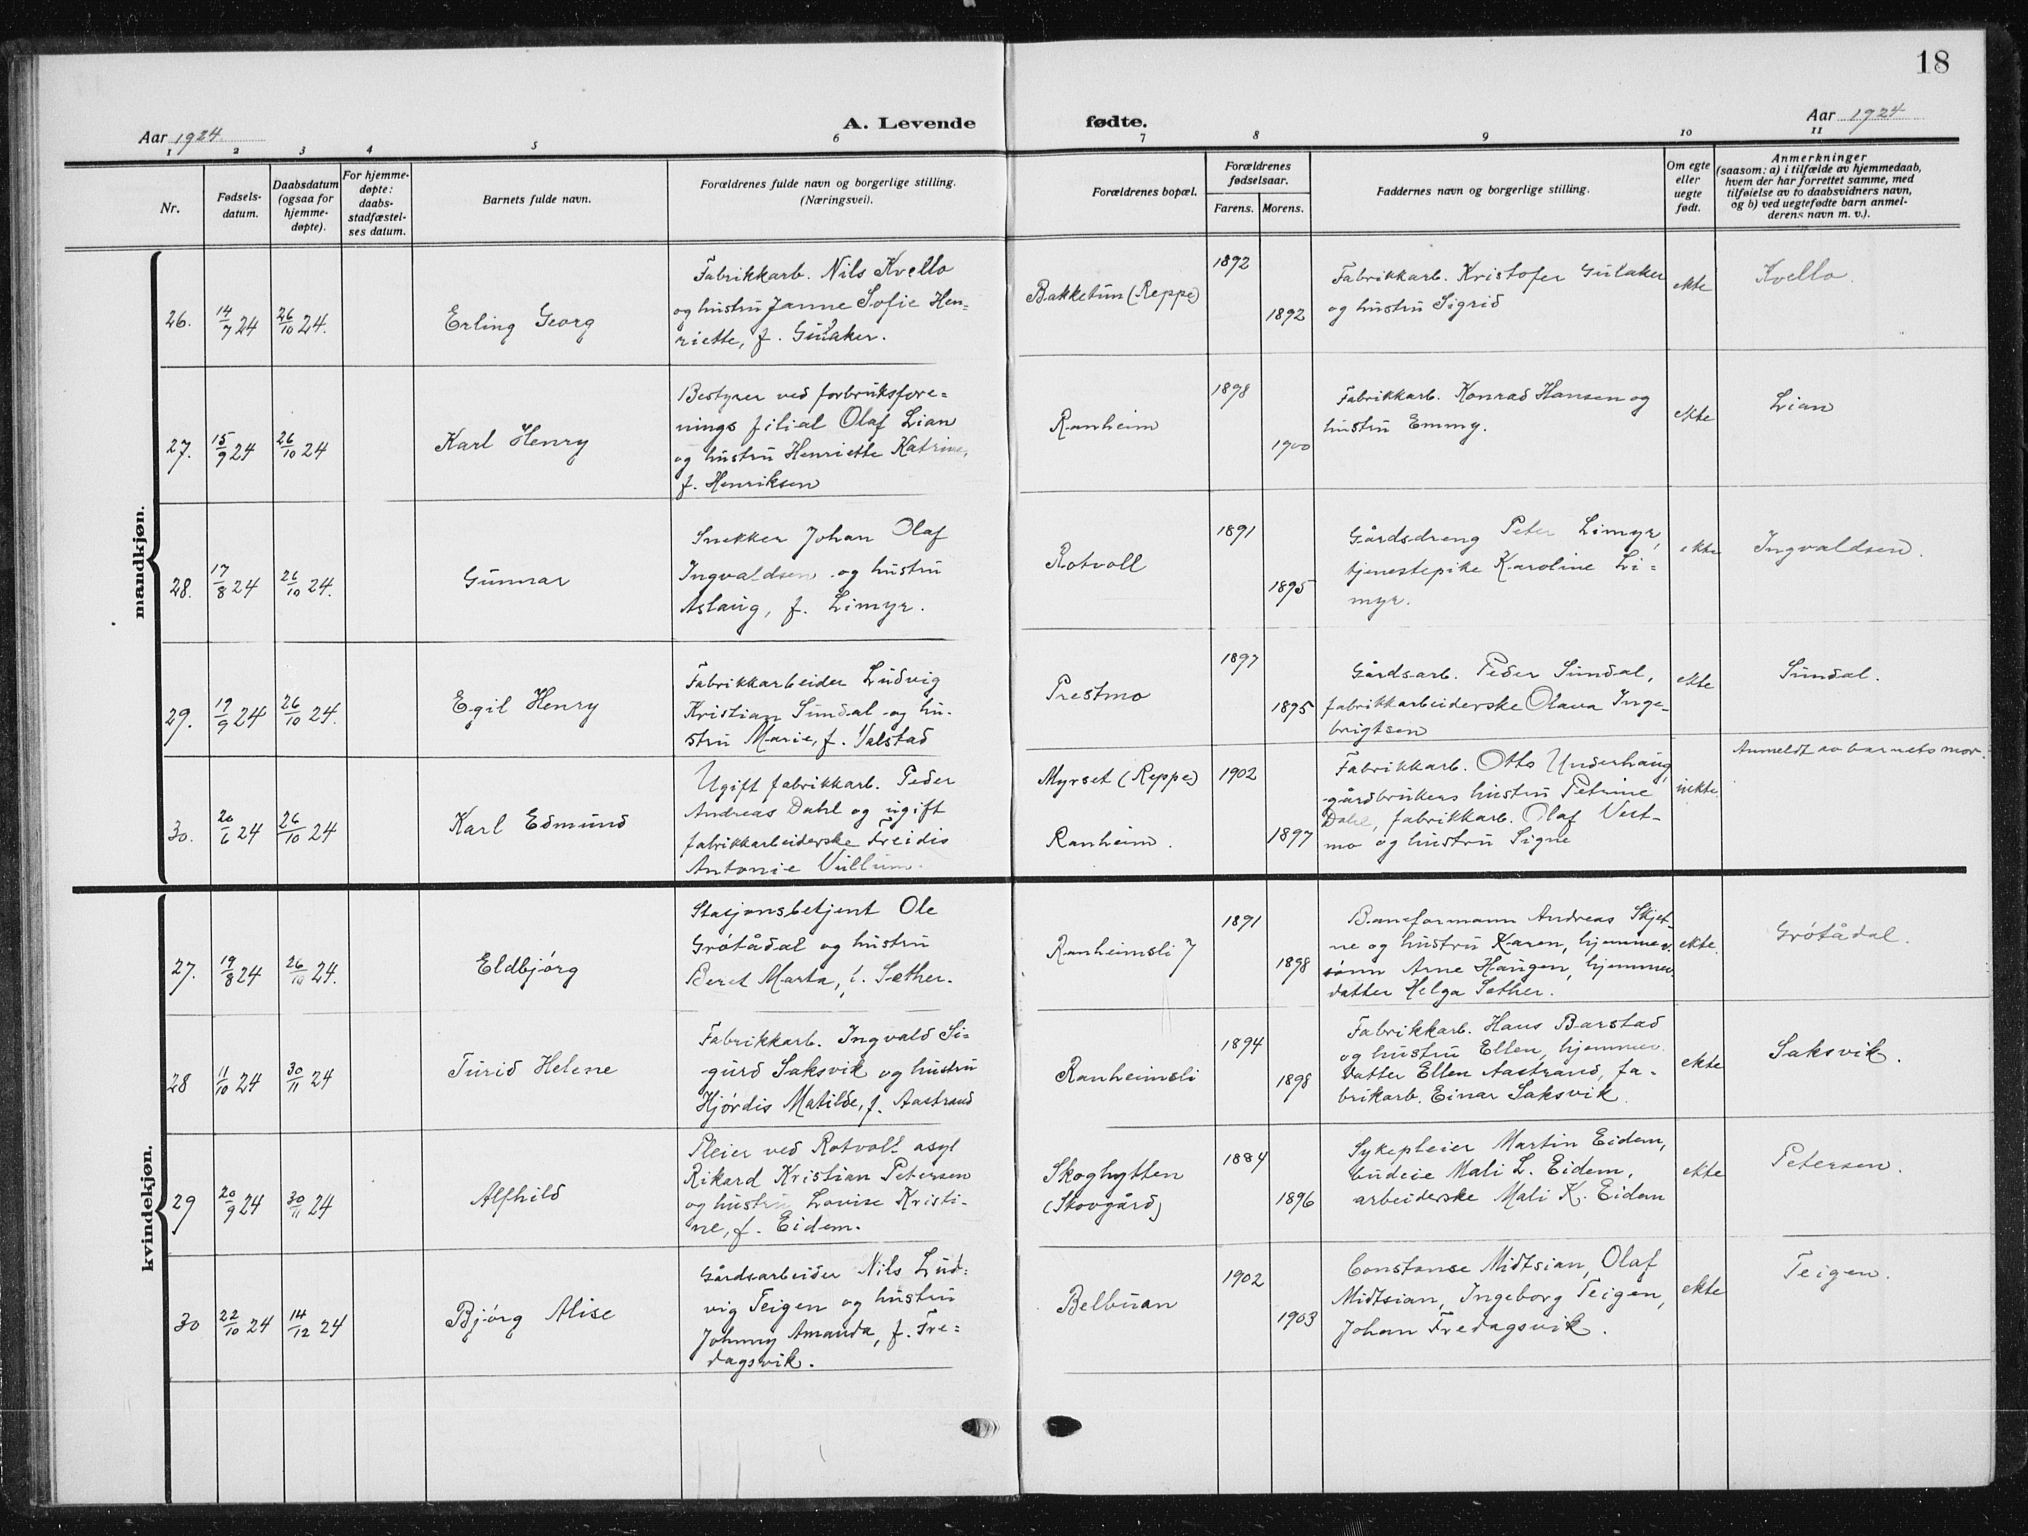 18
Aar 1924
A. Levende fødte.
Aar 1924
1 2 3 4 5 6 7 8 9 10 11
Nr.
Fødsels-
datum.
Daabsdatum
(ogsaa for
hjemme-
døpte).
For hjemme-
døpte:
daabs-
stadfæstel-
ses datum.
Barnets fulde navn.
Forældrenes fulde navn og borgerlige stilling.
(Næringsvei).
Forældrenes bopæl.
Forældrenes
fødselsaar.
Farens. Morens.
Faddernes navn og borgerlige stilling.
Om egte
eller
uegte
født.
Anmerkninger
(saasom: a) i tilfælde av hjemmedaab,
hvem der har forrettet samme, med
tilføielse av to daabsvidners navn,
og b) ved uegtefødte barn anmel-
derens navn m. v.).
mandkjøn.
26. 14/7 24 26/10 24. Erling Georg
Fabrikkarb. Nils Kvello
og hustru Janne Sofie Hen-
riette, f. Gulaker.
Bakketun (Reppe)
1892
1892
Fabrikkarb. Kristofer Gulaker
og hustru Sigrid
ekte
Kvello.
27. 15/9 24 26/10 24 Karl Henry
Bestyrer ved forbruksfore=
nings filial Olaf Lian
og hustru Henriette Katrine,
f. Henriksen
Ranheim
1898
1900
Fabrikkarb. Konrad Hansen og
hustru Emmy.
ekte
Lian
28. 17/8 24 26/10 24. Gunnar
Snekker Johan Olaf
Ingvaldsen og hustru
Aslaug, f. Limyr.
Rotvoll
1891
1895
Gårdsdreng Peter Limyr,
tjenestepike Karoline Li=
myr.
ekte
Ingvaldsen.
29. 19/9 24 26/10 24. Egil Henry
Fabrikkarbeider Ludvig
Kristian Sundal og hu-
stru Marie, f. Valstad
Prestmo
1897
1895
Gårdsarb. Peder Sundal,
fabrikkarbeiderske Olava Inge-
brigtsen
ekte
Sundal.
30. 20/6 24 26/10 24 Karl Edmund
Ugift fabrikkarb. Peder
Andreas Dahl og ugift
fabrikkarbeiderske Freidis
Antonie Vullum.
Myrset (Reppe)
Ranheim.
1902
1897
Fabrikkarb. Otto Underhaug,
gårdbrukers hustru Petrine
Dahl, fabrikkarb. Olaf Vest-
mo og hustru Signe
uekte
Anmeldt av barnets mor.
kvindekjøn.
27. 19/8 24 26/10 24. Eldbjørg
Stasjonsbetjent Ole
Grøtådal og hustru
Beret Marta, f. Sæther.
Ranheimsli 7
1891
1898
Baneformann Andreas Skjet-
ne og hustru Karen, hjemmev.
sønn Arne Haugen, hjemmev.
datter Helga Sæther.
ekte.
Grøtådal.
28 11/10 24 30/11 24 Turid Helene
Fabrikkarb. Ingvald Si-
gurd Saksvik og hustru
Hjørdis Matilde, f. Aastrand
Ranheimsli
1894
1898
Fabrikkarb. Hans Barstad
og hustru Ellen, hjemmev.
datter Ellen Aastrand, fa-
brikarb. Einar Saksvik.
ekte
Saksvik.
29 20/9 24 30/11 24 Alfhild
Pleier ved Rotvoll asyl
Rikard Kristian Petersen
og hustru Lovise Kristi-
ne, f. Eidem.
Skoghytten
(Skovgård)
1884
1896
Sykepleier Martin Eidem,
budeie Mali L. Eidem,
arbeiderske Mali K. Eidem
ekte
Petersen.
30 22/10 24 14/12 24 Bjørg Alise
Gårdsarbeider Nils Lud-
vig Teigen og hustru
Johnny Amanda, f. Fre=
dagsvik.
Belbuan
1902
1903
Constanse Midtsian, Olaf
Midtsian, Ingeborg Teigen,
Johan Fredagsvik.
ekte
Teigen.